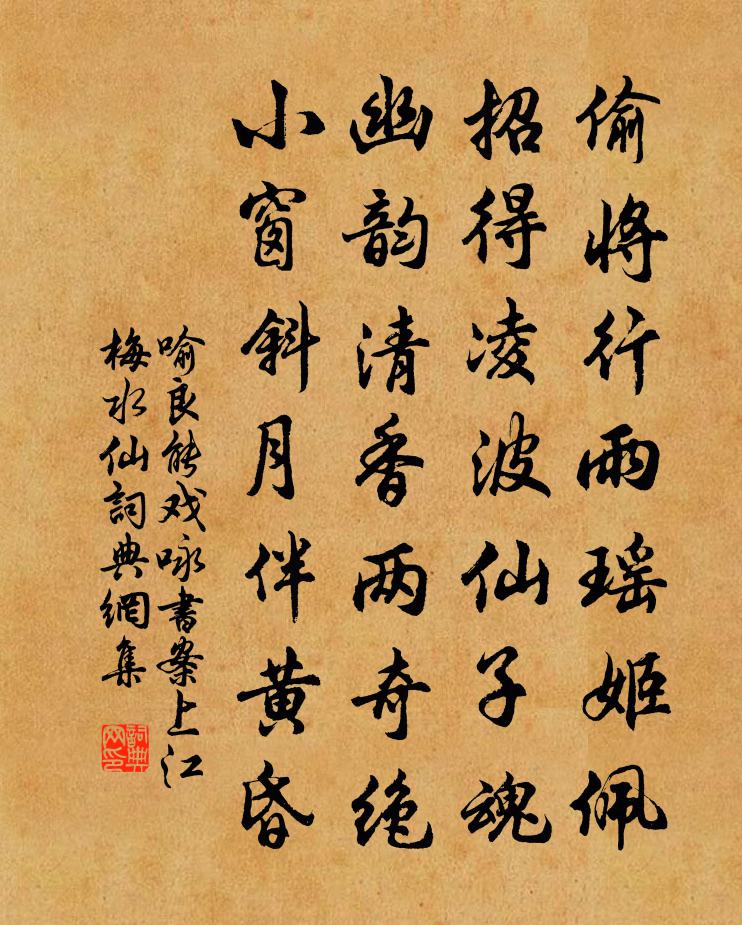 偷将行雨瑶姬佩
招得凌波仙子魂
幽韵清香两奇绝
小窗斜月伴黄昏
喻良能戏咏書案上江
梅水仙詞典網集
詞典
网印